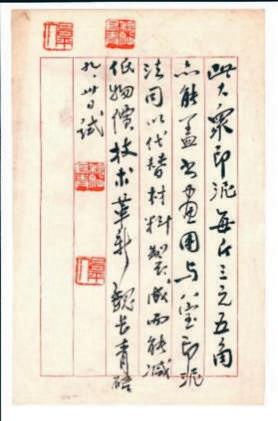 此大众印泥每斤三元五角
亦能盖书画图与八宝印泥
法同以代替材料制成而能减
低物价技术革新 魏长青
九、卅日试